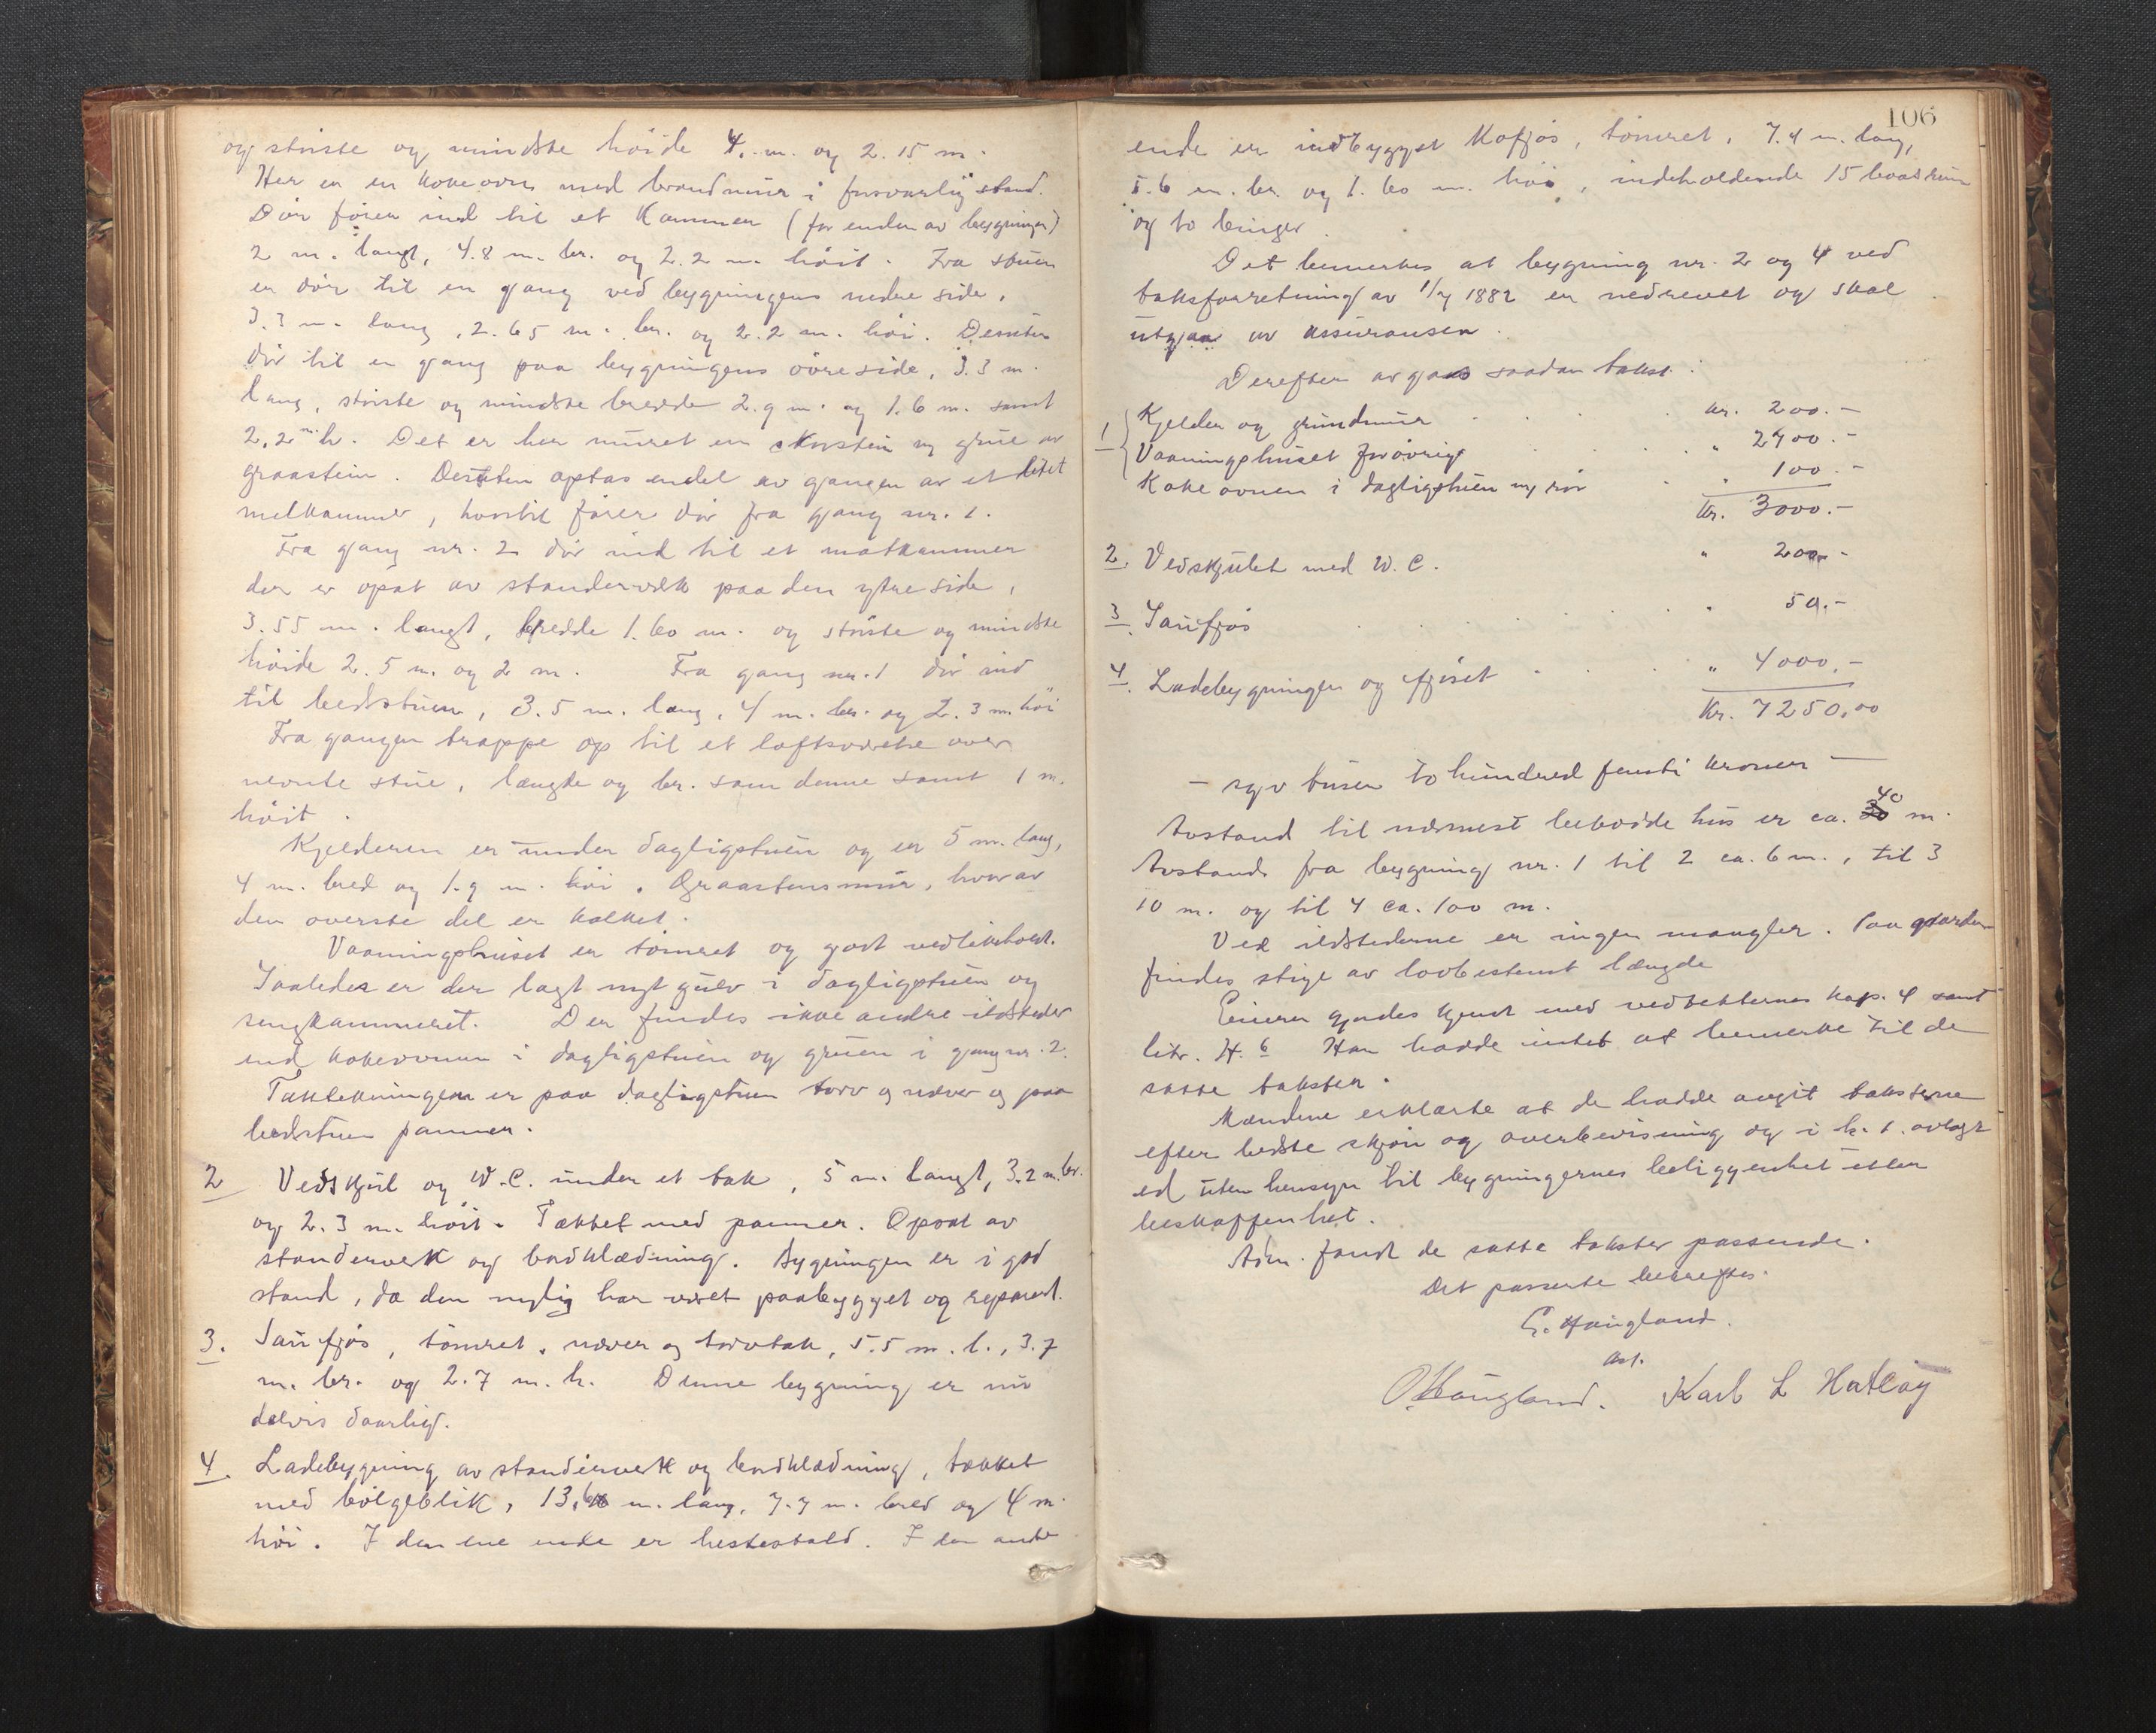 og störste og mindste höide 4. m. og 2.15 m.
Her er en kokeovn med brandmur i forsvarlig stand.
Dör förer ind til et Kammer (for enden av bygningen)
2 m. langt, 4.8 m. br. og 2.2 m. höit. Fra stuen
er dör til en gang ved bygningens nedre side,
3.3 m. lang, 2.65 m. br. og 2.2 m. höi. Desuten
dör til en gang paa bygningens övre side, 3.3 m.
lang, störste og mindste bredde 2.9 m. og 1.6 m. samt
2,2 m. h. Det er her muret en skorstein og grue av
graastein. Desuten optas endel av gangen av et litet
melkammer, hvortil förer dör fra gang nr. 1.
Fra gang nr. 2 dör ind til et matkammer
der er opsat av standerverk paa den ytre side,
3.55 m. langt, bredde 1.60 m. og störste og mindste
höide 2.5 m. og 2 m. Fra gang nr. 1 dör ind
til bedstuen, 3.5 m. lang, 4 m. br. og 2.3 m. höi
Fra gangen trappe op til et loftsværelse over
nævnte stue, længde og br. som denne samt 1 m.
höit.
Kjelderen er under dagligstuen og er 5 m. lang,
4 m. bred og 1.9 m. höi. Graastensmur, hvorav
den överste del er kalket.
Vaaningshuset er tömret og godt vedlikeholdt.
Saaledes er der lagt nyt gulv i dagligstuen og
sengkammeret. Der findes ikke andre ildsteder
end kokeovnen i dagligstuen og gruen i gang nr. 2.
Taktekningen er paa dagligstuen torv og næver og paa
bedstuen panner.
2 Vedskjul og W.C. under et tak, 5 m. langt, 3.2 m. br.
og 2.3 m. höit. Tækket med panner. Opsat av
standerverk og bordklædning. Bygningen er i god
stand, da den nylig har været paabygget og reparert.
3. Saufjös, tömret, næver og torvtak, 5.5 m. l., 3.7
m. br. og 2.7 m. h. Denne bygning er nu
delvis daarlig.
4. Ladebygning av standerverk og bordklædning, tækket
med bölgeblik, 13,60 m. lang, 7.7 m. bred og 4 m.
höi. I den ene ende er hestestald. I den andre
106
ende er indbygget Kofjös, tömret, 7.4 m. lang,
5.6 m. br. og 1.60 m. höi, indeholdende 15 baasrum
og to binger.
Det bemerkes at bygning nr. 2 og 4 ved
taksforretning av 1/7 1882 er nedrevet og skal
utgaa av assuransen.
Derefter avgaas saadan takst:
1 Kjelder og grundmur kr. 200.-
Vaaningshuset forövrigt " 2700.-
Kokeovnen i dagligstuen og rör " 100.-
Kr. 3000.-
2. Vedskjulet med W.C. " 200.-
3. Saufjös " 50.-
4. Ladebygningen og fjöset " 4000.-
Kr. 7250,00
- syv tusen to hundred femti kroner -
Avstand til nærmest bebodde hus er ca. 40 m.
Avstand fra bygning nr. 1 til 2 ca. 6 m., til 3
10 m. og til 4 ca. 100 m.
Ved ildstederne er ingen mangler. Paa gaarden
findes stige av lovbestemt længde
Eieren gjordes kjendt med vedtekternes kap. 4 samt
litr. H. 6 Han hadde intet at bemerke til de
satte takster.
Mændene erklærte at de hadde avgit taksterne
efter bedste skjön og overbevisning og i h. t. avlagt
ed uten hensyn til bygningernes beliggenhet eller
beskaffenhet.
Adm. fandt de satte takster passende.
Det passerte bekreftes.
E. Haugland.
ass.
O. Haugland. Karl L Hatlöy